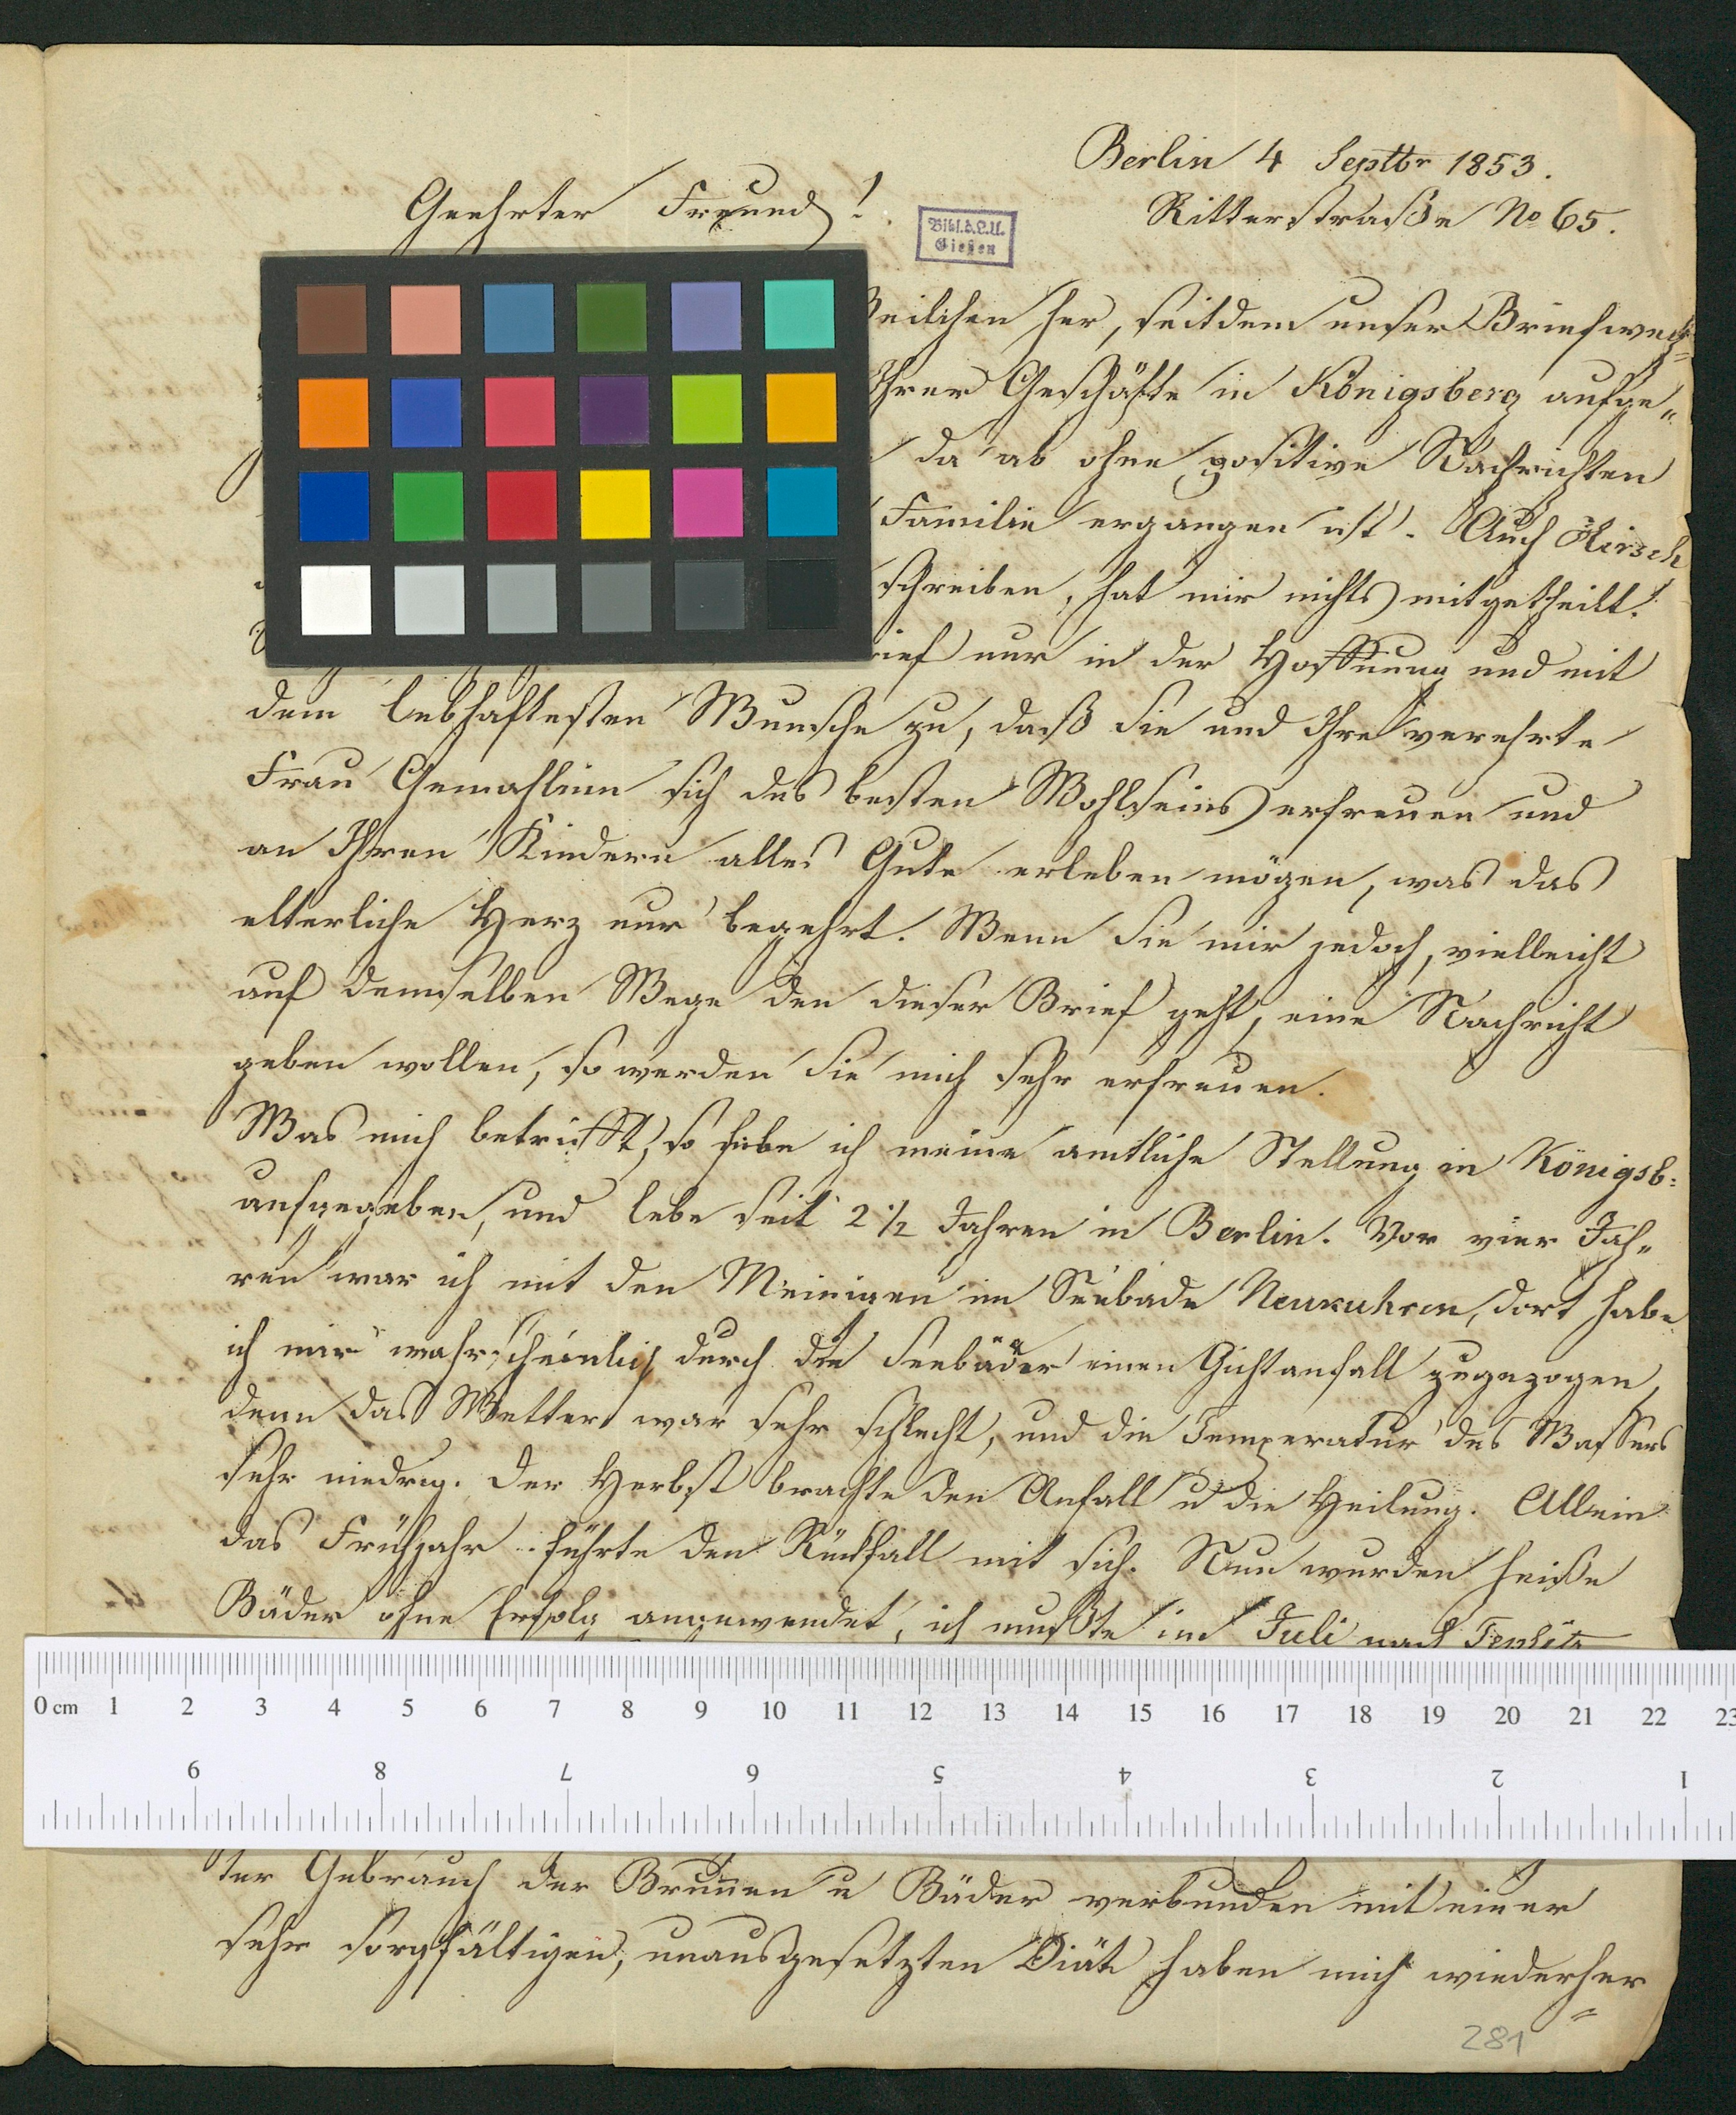 Berlin 4 Septbr 1853.
Geehrter Freund!
Ritterstraße No 65.
Bibl. d. L. U.
Gießen
Weilchen her, seitdem unser Briefwech=
Ihrer Geschäfte in Königsberg aufge„
da ab ohne positive Nachrichten
Familie ergangen ist. Auch Hirsch
schreiben, hat mir nichts mitgetheilt.
nur in der Hoffnung und mit
dem lebhaftesten Wunsche zu, daß Sie und Ihre verehrte
Frau Gemahlinn sich des besten Wohlseins erfreuen und
an Ihren Kindern alles Gute erleben mögen, was das
elterliche Herz nur begehrt. Wenn Sie mir jedoch, vielleicht
auf demselben Wege den dieser Brief geht, eine Nachricht
geben wollen, so werden Sie mich sehr erfreuen.
Was mich betrifft, so habe ich meine amtliche Stellung in Königsb:
aufgegeben, und lebe seit 2 1/2 Jahren in Berlin. Vor vier Jah„
ren war ich mit den Meinigen im Seebade Neukuhren, dort habe
ich mir wahrscheinlich durch die Seebäder einen Gichtanfall zugezogen,
denn das Wetter war sehr schlecht, und die Temperatur des Wassers
sehr niedrig. Der Herbst brachte den Anfall u die Heilung. Allein
das Frühjahr führte den Rückfall mit sich. Nun wurden heiße
Bäder ohne Erfolg angewendet, ich mußte im Juli nach Teplitz
0 cm 1 2 3 4 5 6 7 8 9 10 11 12 13 14 15 16 17 18 19 20 21 22 23
9 8 7 6 5 4 3 2 1
ter Gebrauch der Brunnen u Bäder verbunden mit einer
sehr sorgfältigen, unausgesetzten Diät haben mich wiederher
=
281